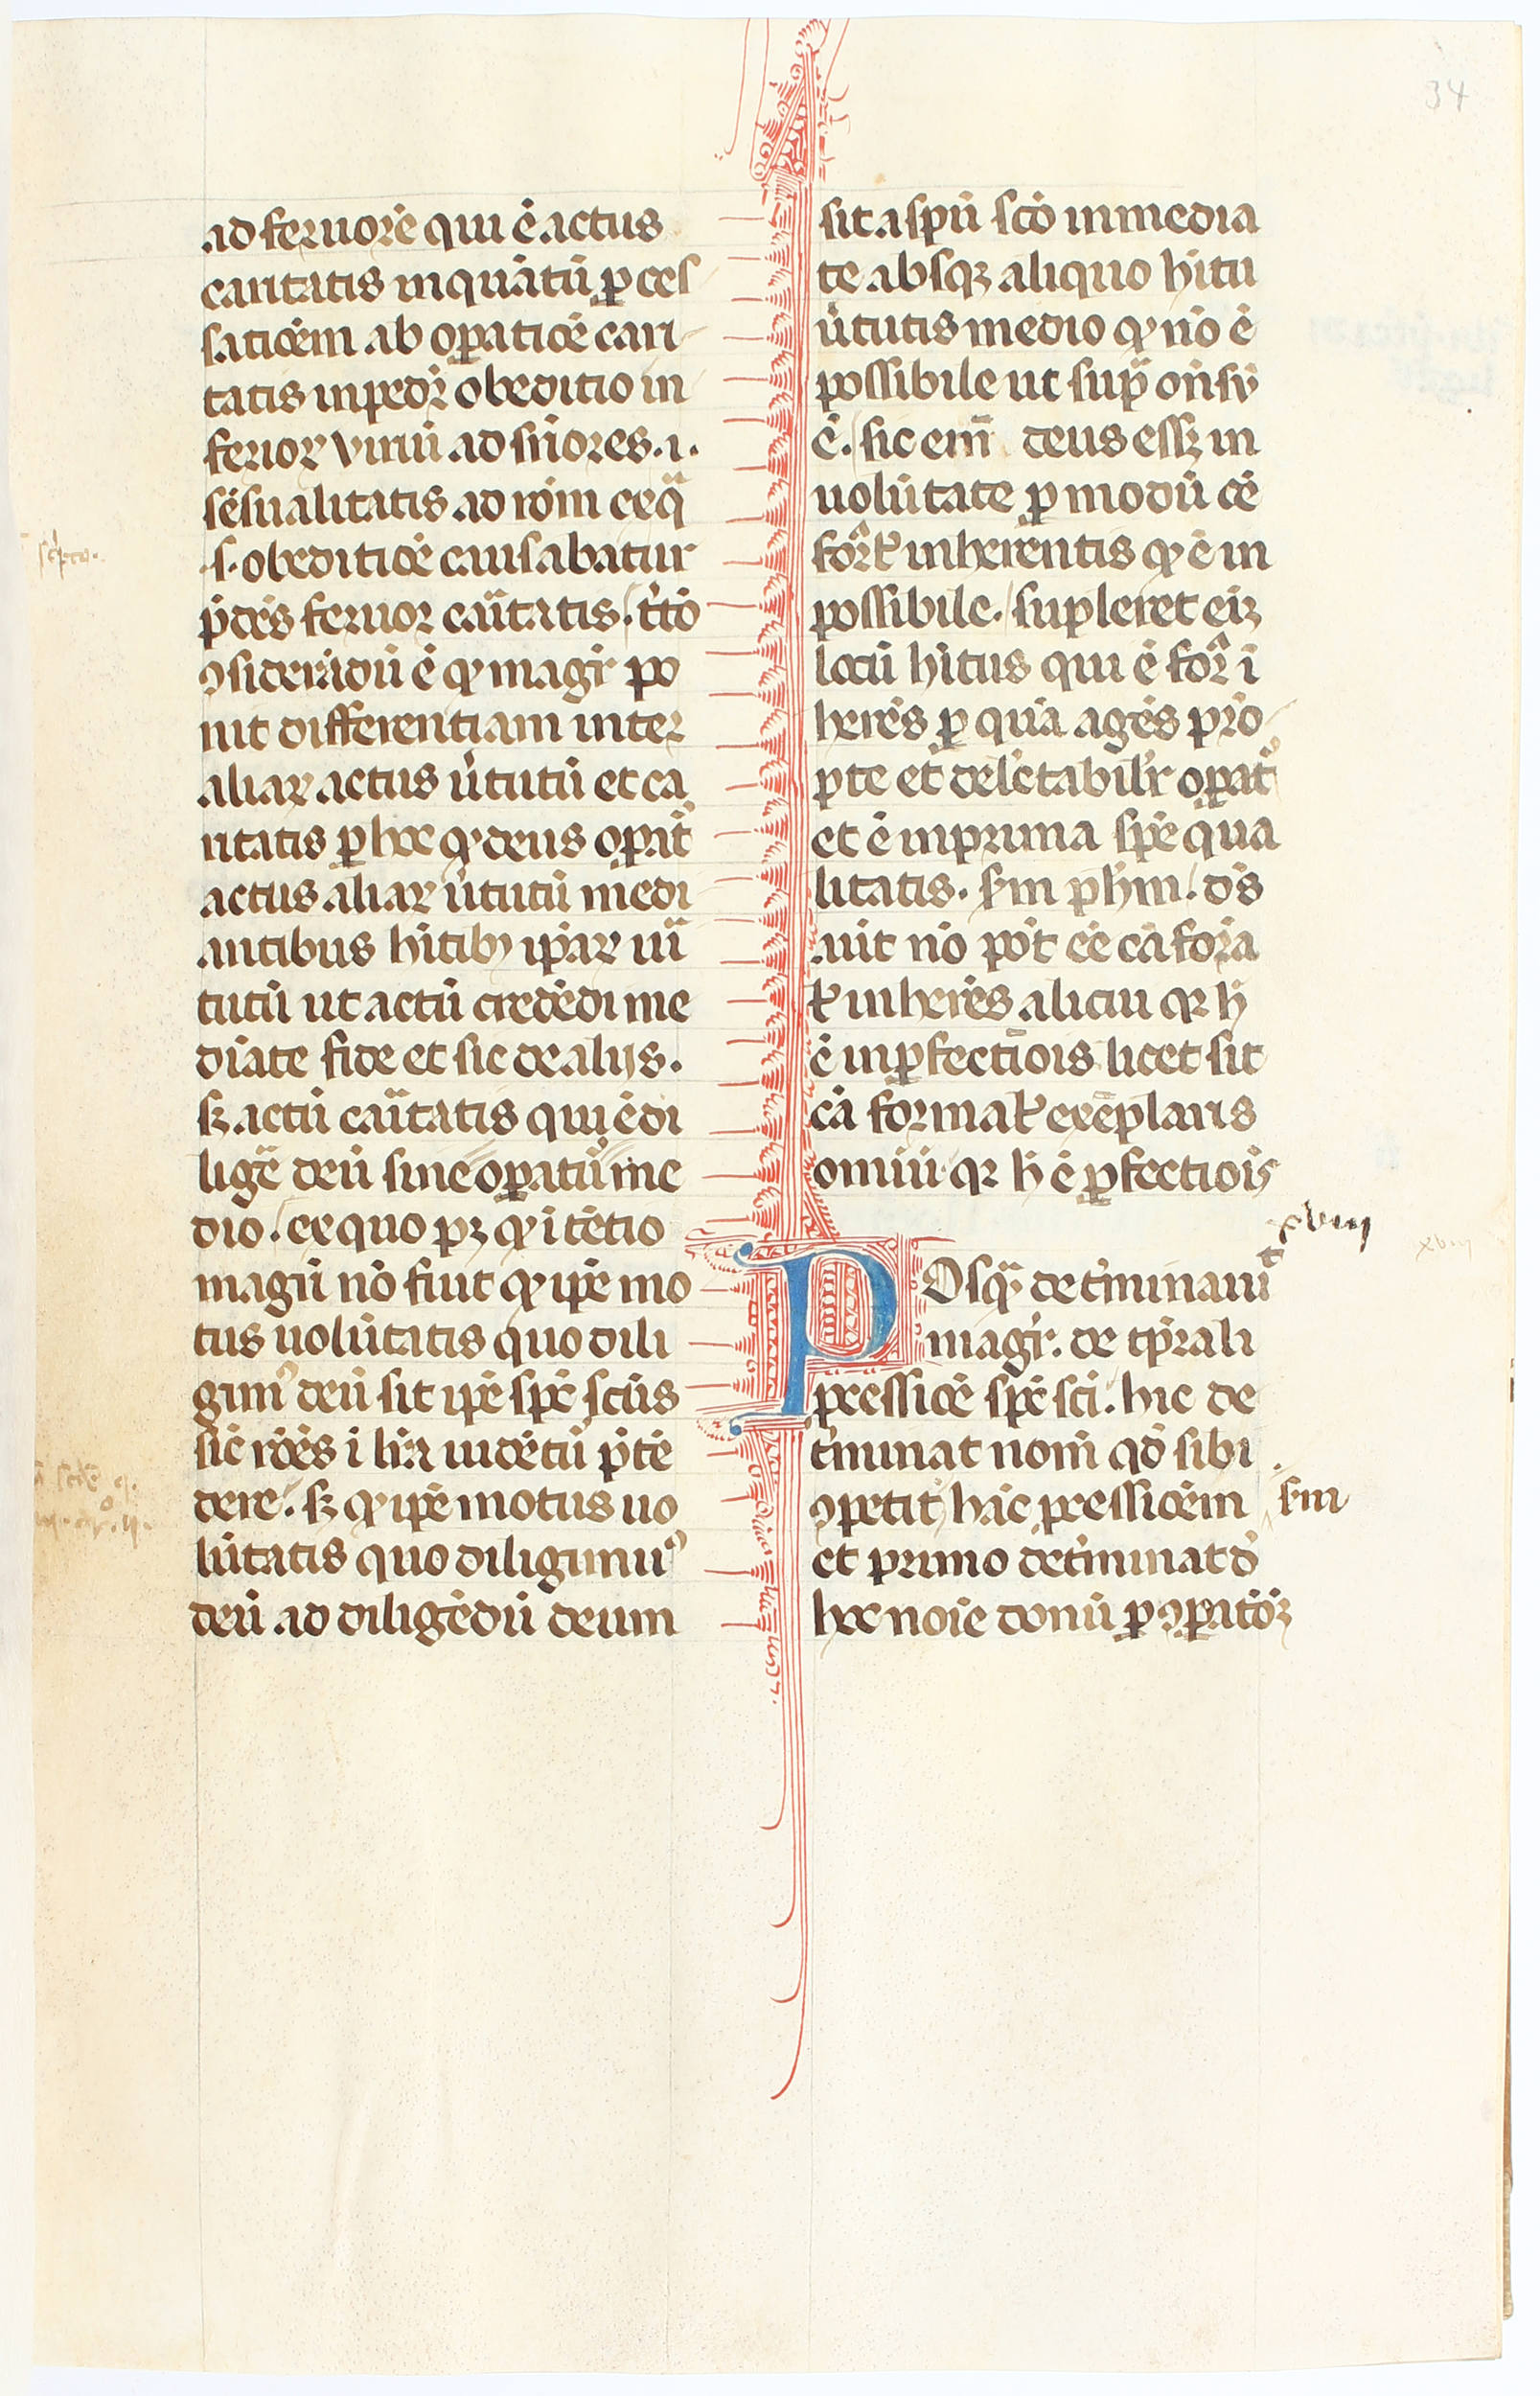 34
ad feruorē qui ē actus
caritatis inquātū ꝑ ces
satiōem ab oꝑatiōe cari
tatis inpedir̄ obeditio in
ferior virium ad suꝑiores .i.
sēsualitatis ad rōm ex qua
.s. obeditiōe causabatur
p̄dcs feruor caritatis. t̄tō
ꝯsiderādū ē ꝙ magr̄ po
nit differentiam inter
aliaꝝ actus v̄tutū et ca
ritatis ꝑ hoc ꝙ deus oꝑat̄
actus aliaꝝ v̄tutū medi
antibus hītibꝫ ip̄aꝝ uir
tutū ut actū credēdi me
diāte fide et sic de alijs.
sꝫ actū caritatis qui ē di
ligē deū sine oꝑatur me
dio. ex quo pꝫ ꝙ ītētio
magr̄i nō fuit ꝙ ip̄e mo
tus uolūtatis quo dili
gimꝰ deū sit ip̄e sp̄c sc̄us
sic rōes ī līra uidētur p̄tē
dere. sꝫ ꝙ ip̄e motus uo
lūtatis quo diligimuꝰ
deū ad diligēdū deum
sit a sp̄u sc̄o inmedia
te absqꝫ aliquo hītu
v̄tutis medio ꝙ nō ē
possibile ut sup̄ on̄sū
ē. sic eni deus essꝫ in
uolūtate ꝑ modū cē
for̄r inherentis ꝙ ē in
possibile. supleret eīꝫ
locū hītus qui ē for̄ ī
herēs ꝑ quā agēs prō
pte et delc̄tabilr̄ oꝑat̄ꝰ
et ē in prima sp̄e qua
litatis. s̄m ph̄m. d̄s
aūt nō pōt eē cā forā
lr̄ inherēs alicui qꝛ h̄
ē inꝑfectiōis licet sit
cā formalr̄ exēplaris
omiū qꝛ h̄ ē ꝑfectiōis
xviij
xviij
Posqꝫ det̄minauit
magr̄. de tp̄rali
pcessiōe sp̄c sc̄i. hic de
t̄minat nom̄ qd̄ sibi
ꝯpetit hāc pcessiōem s̄m
et primo det̄minat d̄
hoc noīe donū ꝑ ꝯꝑatōꝫ